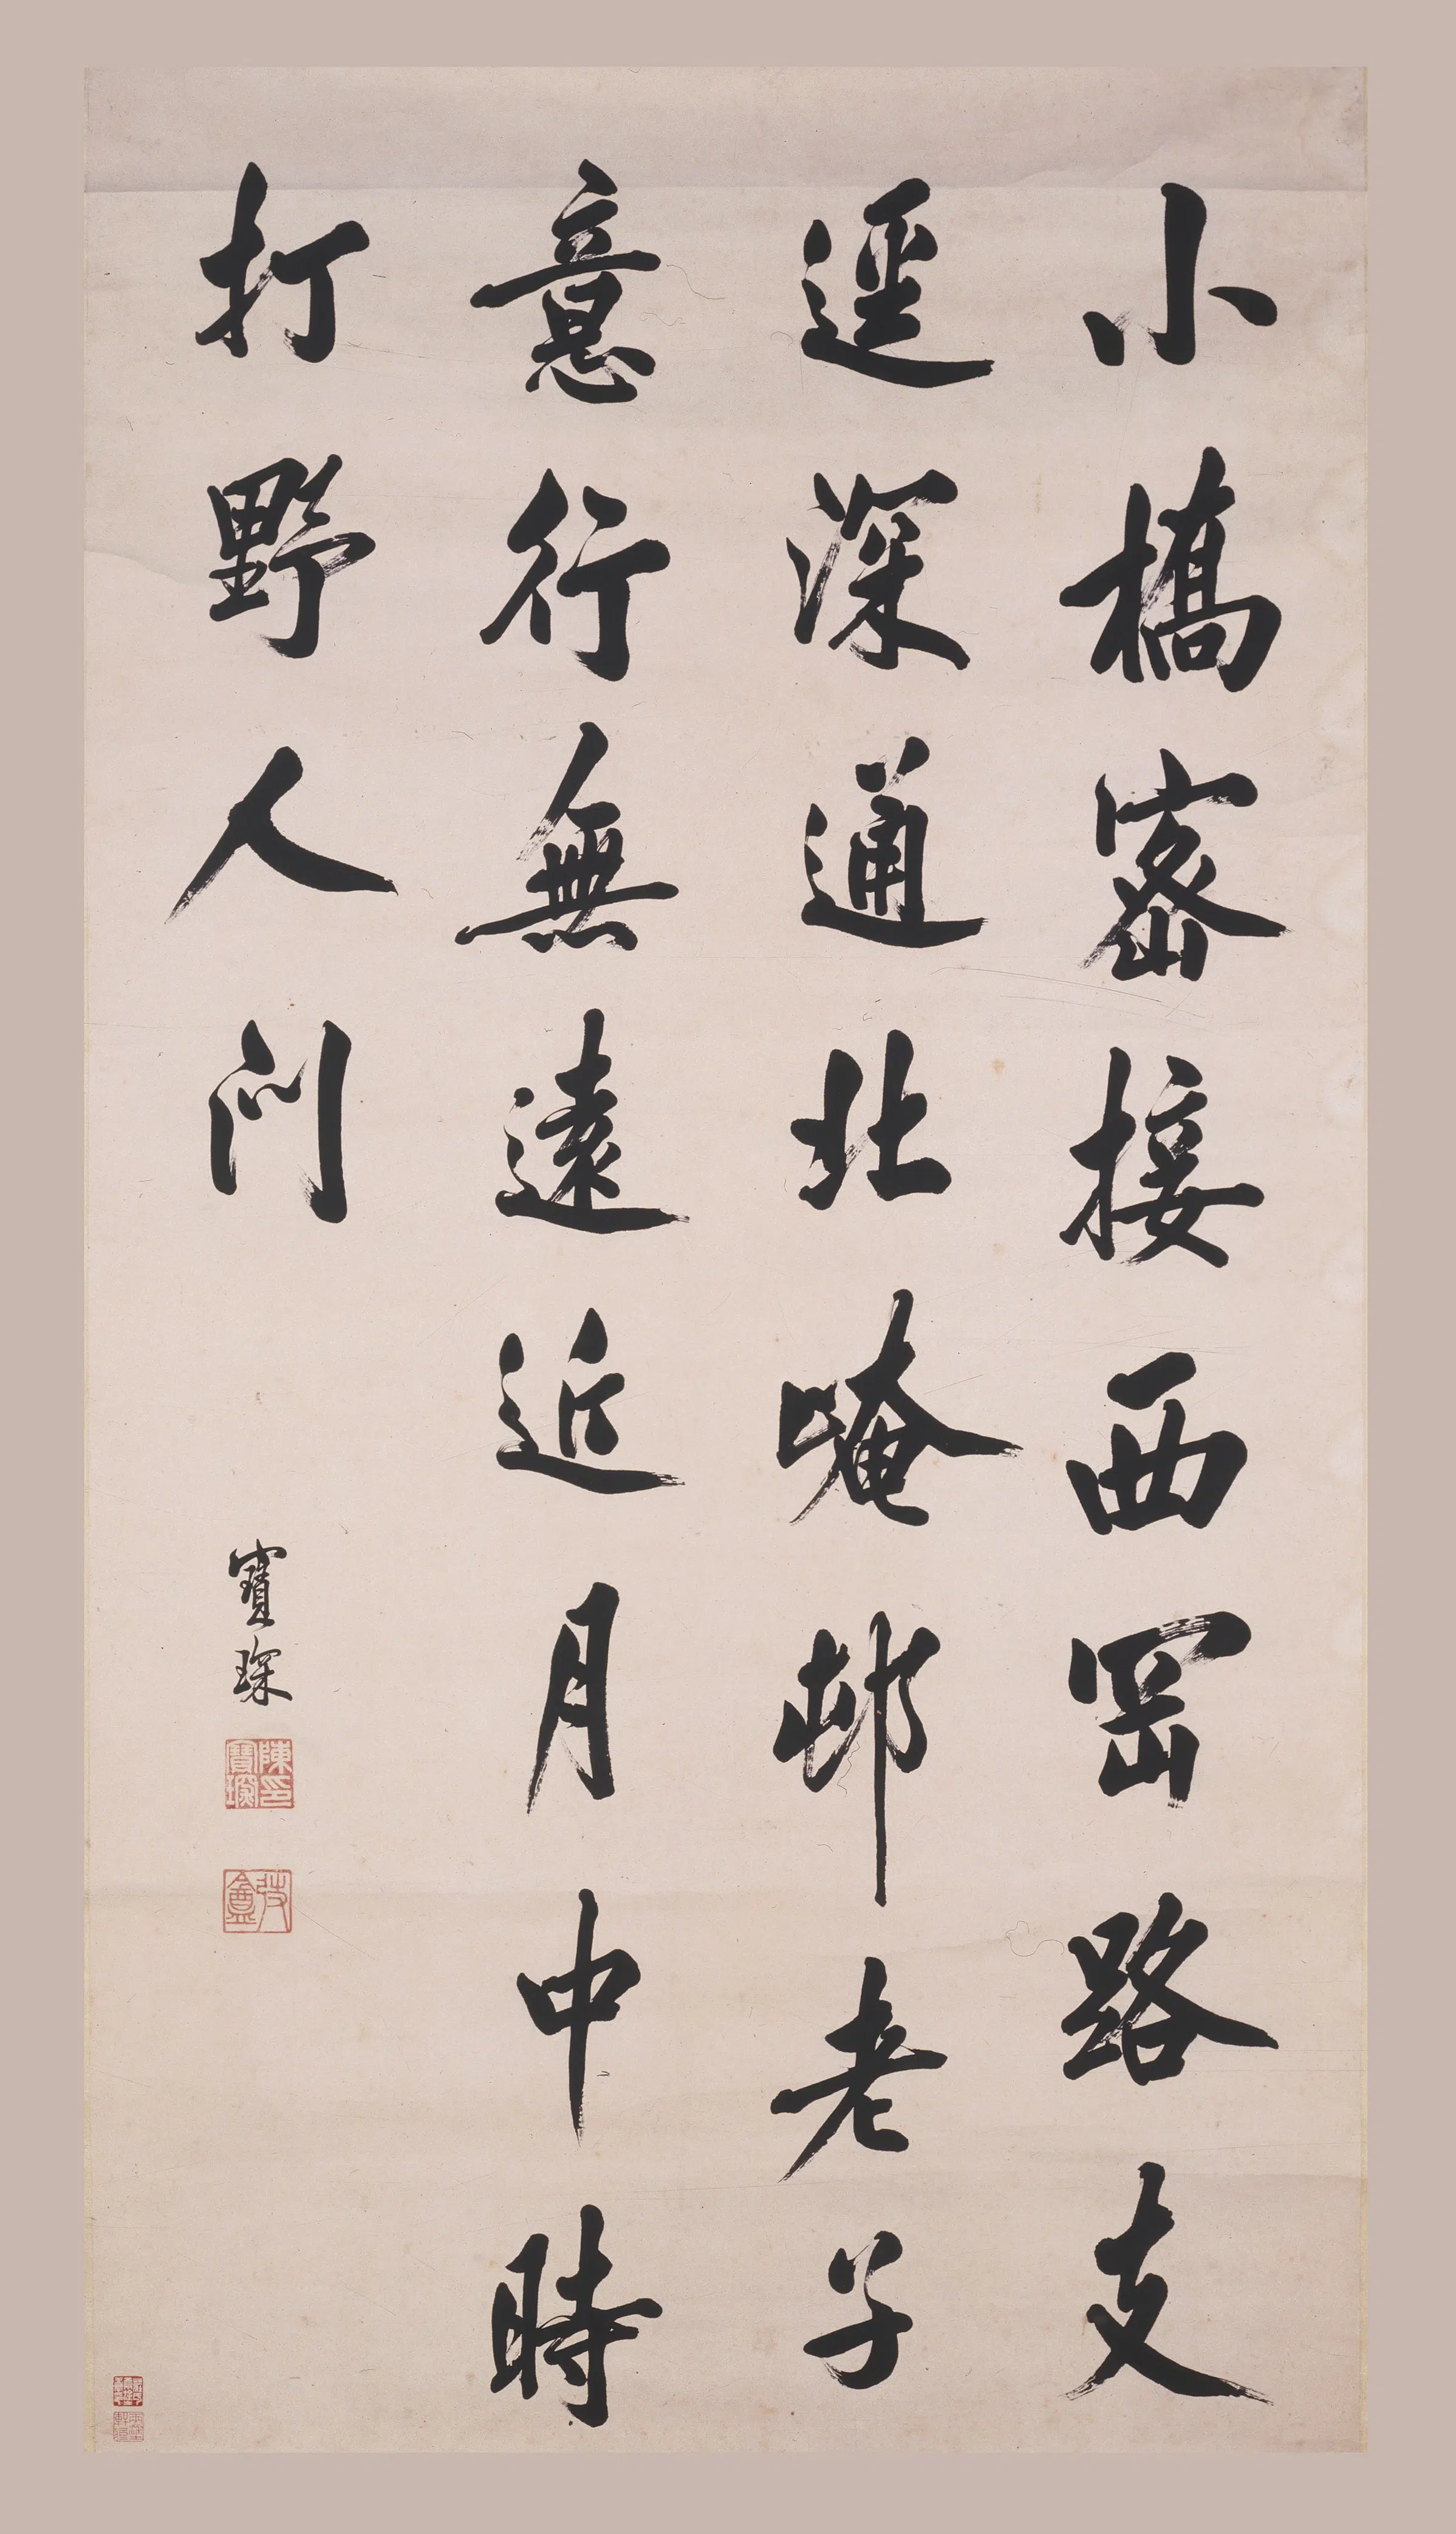 小橋密接西岡路支
逕深通北崦邨老子
意行無遠近月中時
打野人門
寶琛
陳寶琛印
弢盦